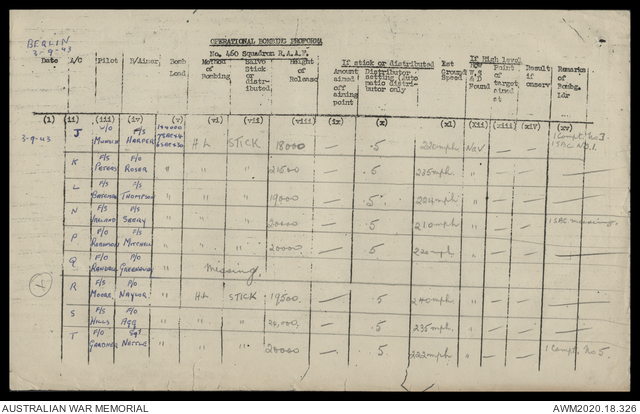 BERLIN
3-9-43
OPERATIONAL BOMBING PROFORMA
No. 460 Squadron R.A.A.F.
Date A/C Pilot B/Aimer Bomb Load Method of Bombing Salvo Stick or distributed. Height of Release If stick or distributed Amount aimed off aiming point Distributor setting (Auto matic distributor only) Est Ground Speed If High level W/V Found Point of target aimed at Result if conserv Remarks of Bombg. Ldr
(i) (ii) (iii) (iv) (v) (vi) (vii) (viii) (ix) (x) (xi) (xii) (xiii) (xiv) (xv)
3-9-43 J F/S HARPER HL STICK 18000 — .5 220mph Nav — — 1 Compt. No 3 1 SBC NO.1.
K F/S PETERS F/O ROSER " " " 21500 — .5 235mph " — —
L F/S F/S THOMPSON " " " 19000 — .5 224mph " — —
N F/S F/S " " " 20000 — .5 210mph " — — 1 SBC missing.
P F/O F/S MITCHELL " " " 20000 — .5 220mph " — —
Q F/O RANDALL F/O " Missing.
R F/S MOORE F/O NAYLOR " HL STICK 19500 — .5 240mph " — —
S F/S HILLS F/O " " " 20,000 — .5 235mph " — —
T F/O GARDNER Sgt NETTLE " " " 20000 — .5 222mph " — — 1 Compt. No 5.
AUSTRALIAN WAR MEMORIAL
AWM2020.18.326